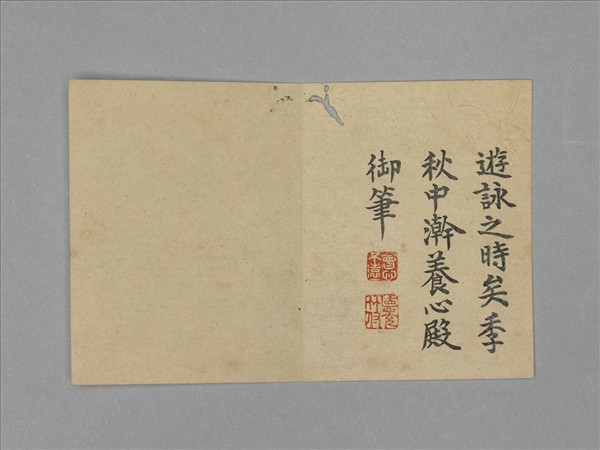 遊詠之時矣季
秋中澣養心殿
御筆